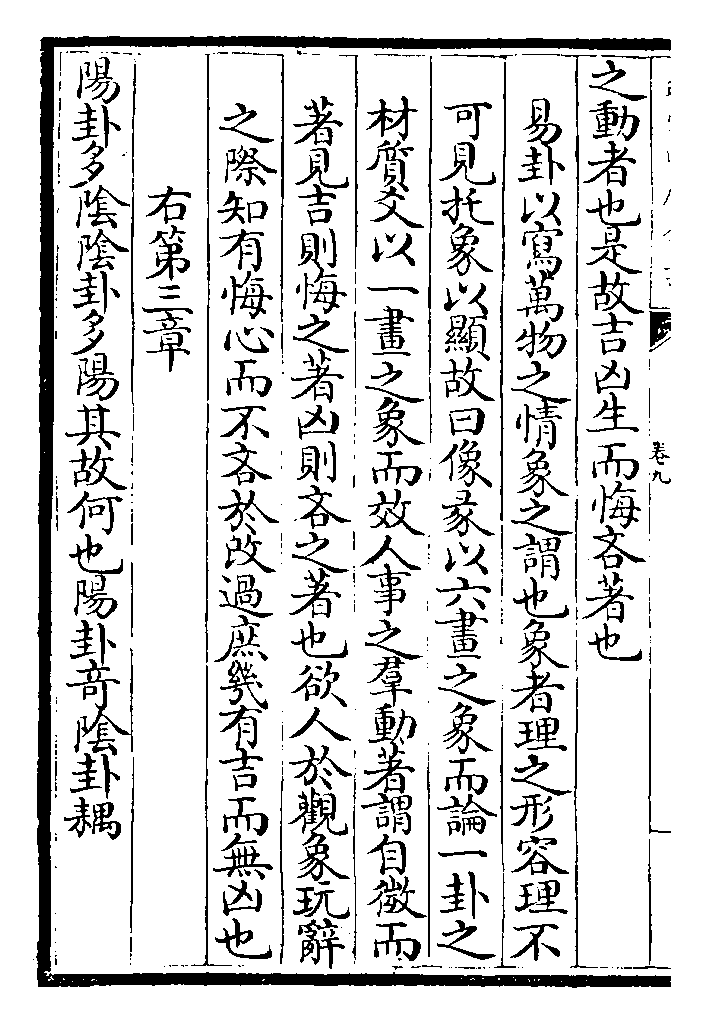 之動者也是故吉凶生而悔吝著也
易卦以寫萬物之情象之謂也象者理之形容理不
可見托象以顯故曰像彖以六畫之象而論一卦之
材質爻以一畫之象而效人事之羣動著謂自微而
著見吉則悔之著凶則吝之著也欲人於觀象玩辭
之際知有悔心而不吝於改過庶幾有吉而無凶也
右第三章
陽卦多陰陰卦多陽其故何也陽卦奇陰卦耦
卷九